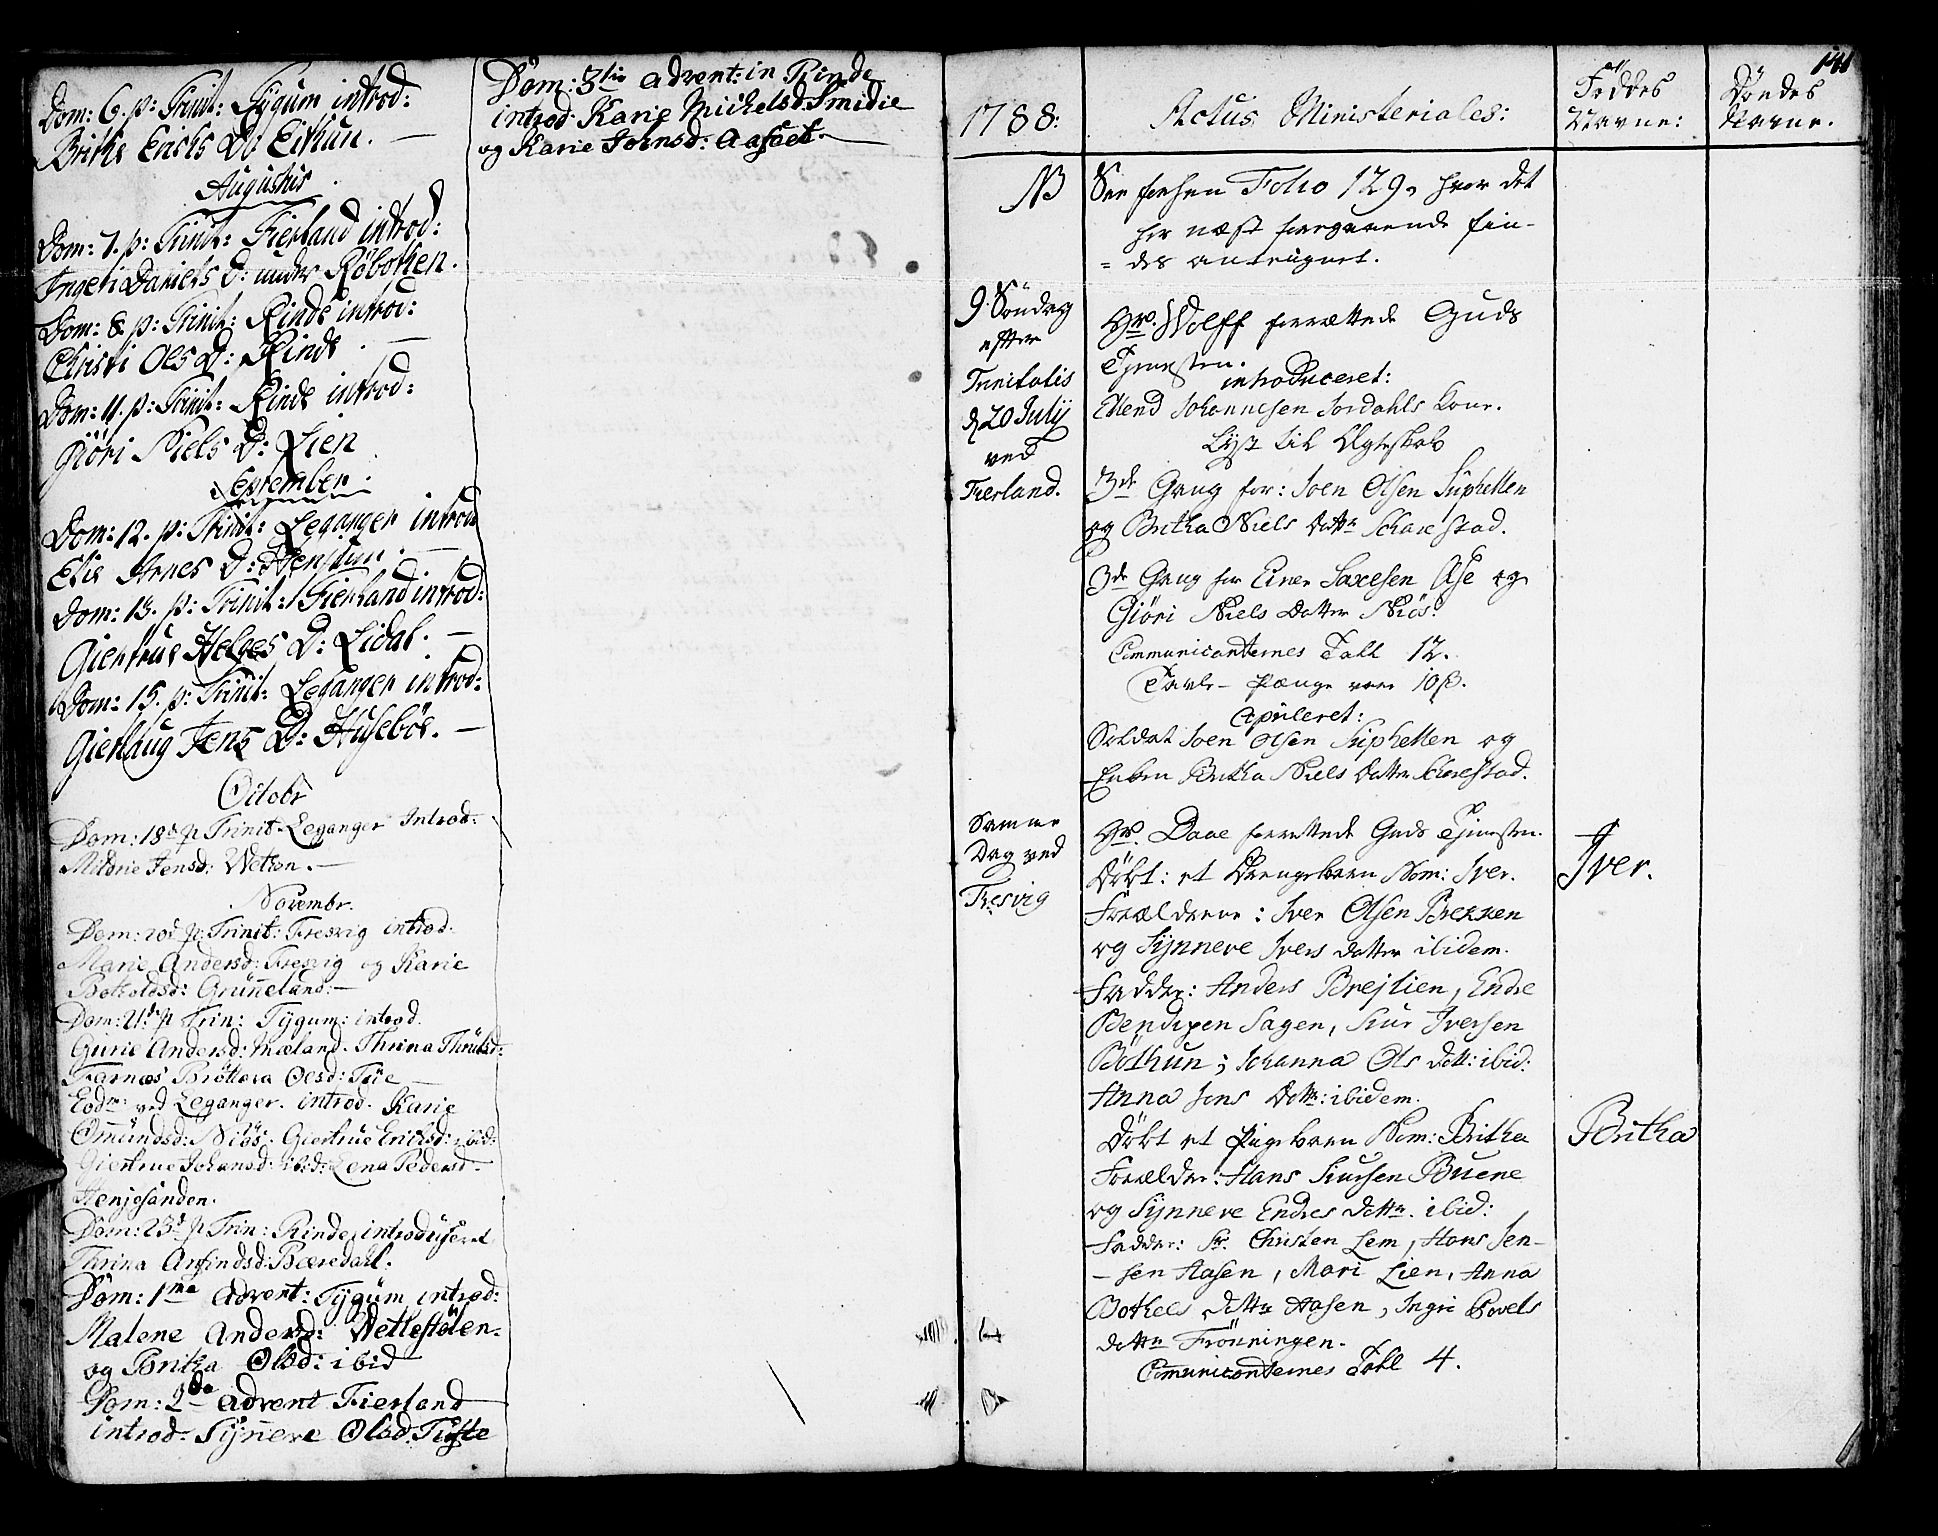 Dom: 6. p: Trinit: Tÿgum introd:
Brithe Erichs D: Eithun. —
Augustus
Dom: 7. p: Trinit: Fierland introd:
Ingeri Daniels D: under Røbothen.
Dom: 8. p: Trinit: Rinde introd:
Christi Oles D: Rinde. —
Dom: 11. p: Trinit: Rinde introd:
Giöri Niels D: Lien
September.
Dom: 12. p: Trinit: Leganger introd
Elie Arnes D: Henjum. —
Dom: 13. p: Trinit: Fierland introd:
Giertrue Helges D: Lidal. —
Dom: 15. p: Trinit: Leganger introd:
Gierthug Jens D: Huseböe. —
Octobr
Dom: 18de p Trinit Leganger Introd:
Jensd: Wetten. —
Novembr.
Dom: 20de p: Trinit: Fresvig introd.
Marie Andersd: Fresvig og Karie
Botholdsd: Grünneland: —
Dom: 21de p Trin: Tÿgum: introd.
Gurie Andersd: Mæland. Thrina
Farnæs Olsd:
Eodm ved Leganger. introd. Karie
Omündsd: Niös: Giertrue Erichsd: ibid:
Giertrue Johansd: ibid: Lena Pedersd
Henjesanden.
Dom: 23d p Trin: Rinde introduseret
Thrina Arfindsd: Bæredahl.
Dom: 1ma Advent: Tÿgüm introd:
Malene Andersd: Wetlestölen
og Britha Olsd: ibid
Dom: 2da Advent Fierland
introd: Sÿnneve Olsd: Tüfte
Dom: 3tia Advent: in Rinde
introd: Karie Michelsd Smidie
og Karie Joensd: Aaset
141
1788:
Actus Ministeriales:
Föddes
Navne:
Döndes
Navne.
NB
See forhen Folio 129, hvor det
her næst foregaaende fin-
= des antegnet.
9. Söndag
efter
Trinitatis
d 20 Julÿ
ved
Fierland.
Hr. Wolff forrættede Guds
Tjenesten.
introduceret:
Ellend Johannesen Jordahls Kone.
Lyst til Ægteskab
3de Gang for: Joen Olsen Suphellen
og Britha Niels Dattr Scharestad.
3de Gang for Einer Saxesen Ase og
Giöri Niels Datter Niös.
Communicanternes Tall 12.
Tavle-Pænge vare 10 ß.
Copuleret:
Soldat Joen Olsen Suphellen og
Enken Britha Niels Datter Scharestad.
Samme
Dag ved
Fresvig
Hr. Daae forrettede Guds Tjenesten.
Döbt: et Drengebarn Nom: Iver.
Forældrene: Iver Olsen Brekken
og Synneve Ivers Datter ibidem.
Fadder: Anders Brejlien, Endre
Bendixen Sagen, Siur Iversen
Böthun; Johanna Ols Dattr: ibid:
Anna Jens Dattr: ibidem.
Iver.
Döbt et Pigebarn Nom: Britha
Forælder: Hans Siursen Buene
og Synneve Endres Dattr. ibid:
Fadder: Sr. Christen Lem, Hans Jen-
-sen Hasen, Mari Lien, Anna
Bothels Dattr Hasen, Ingri Povels
Dattr Frönningen.
Comunicanternes Tall 4.
Britha